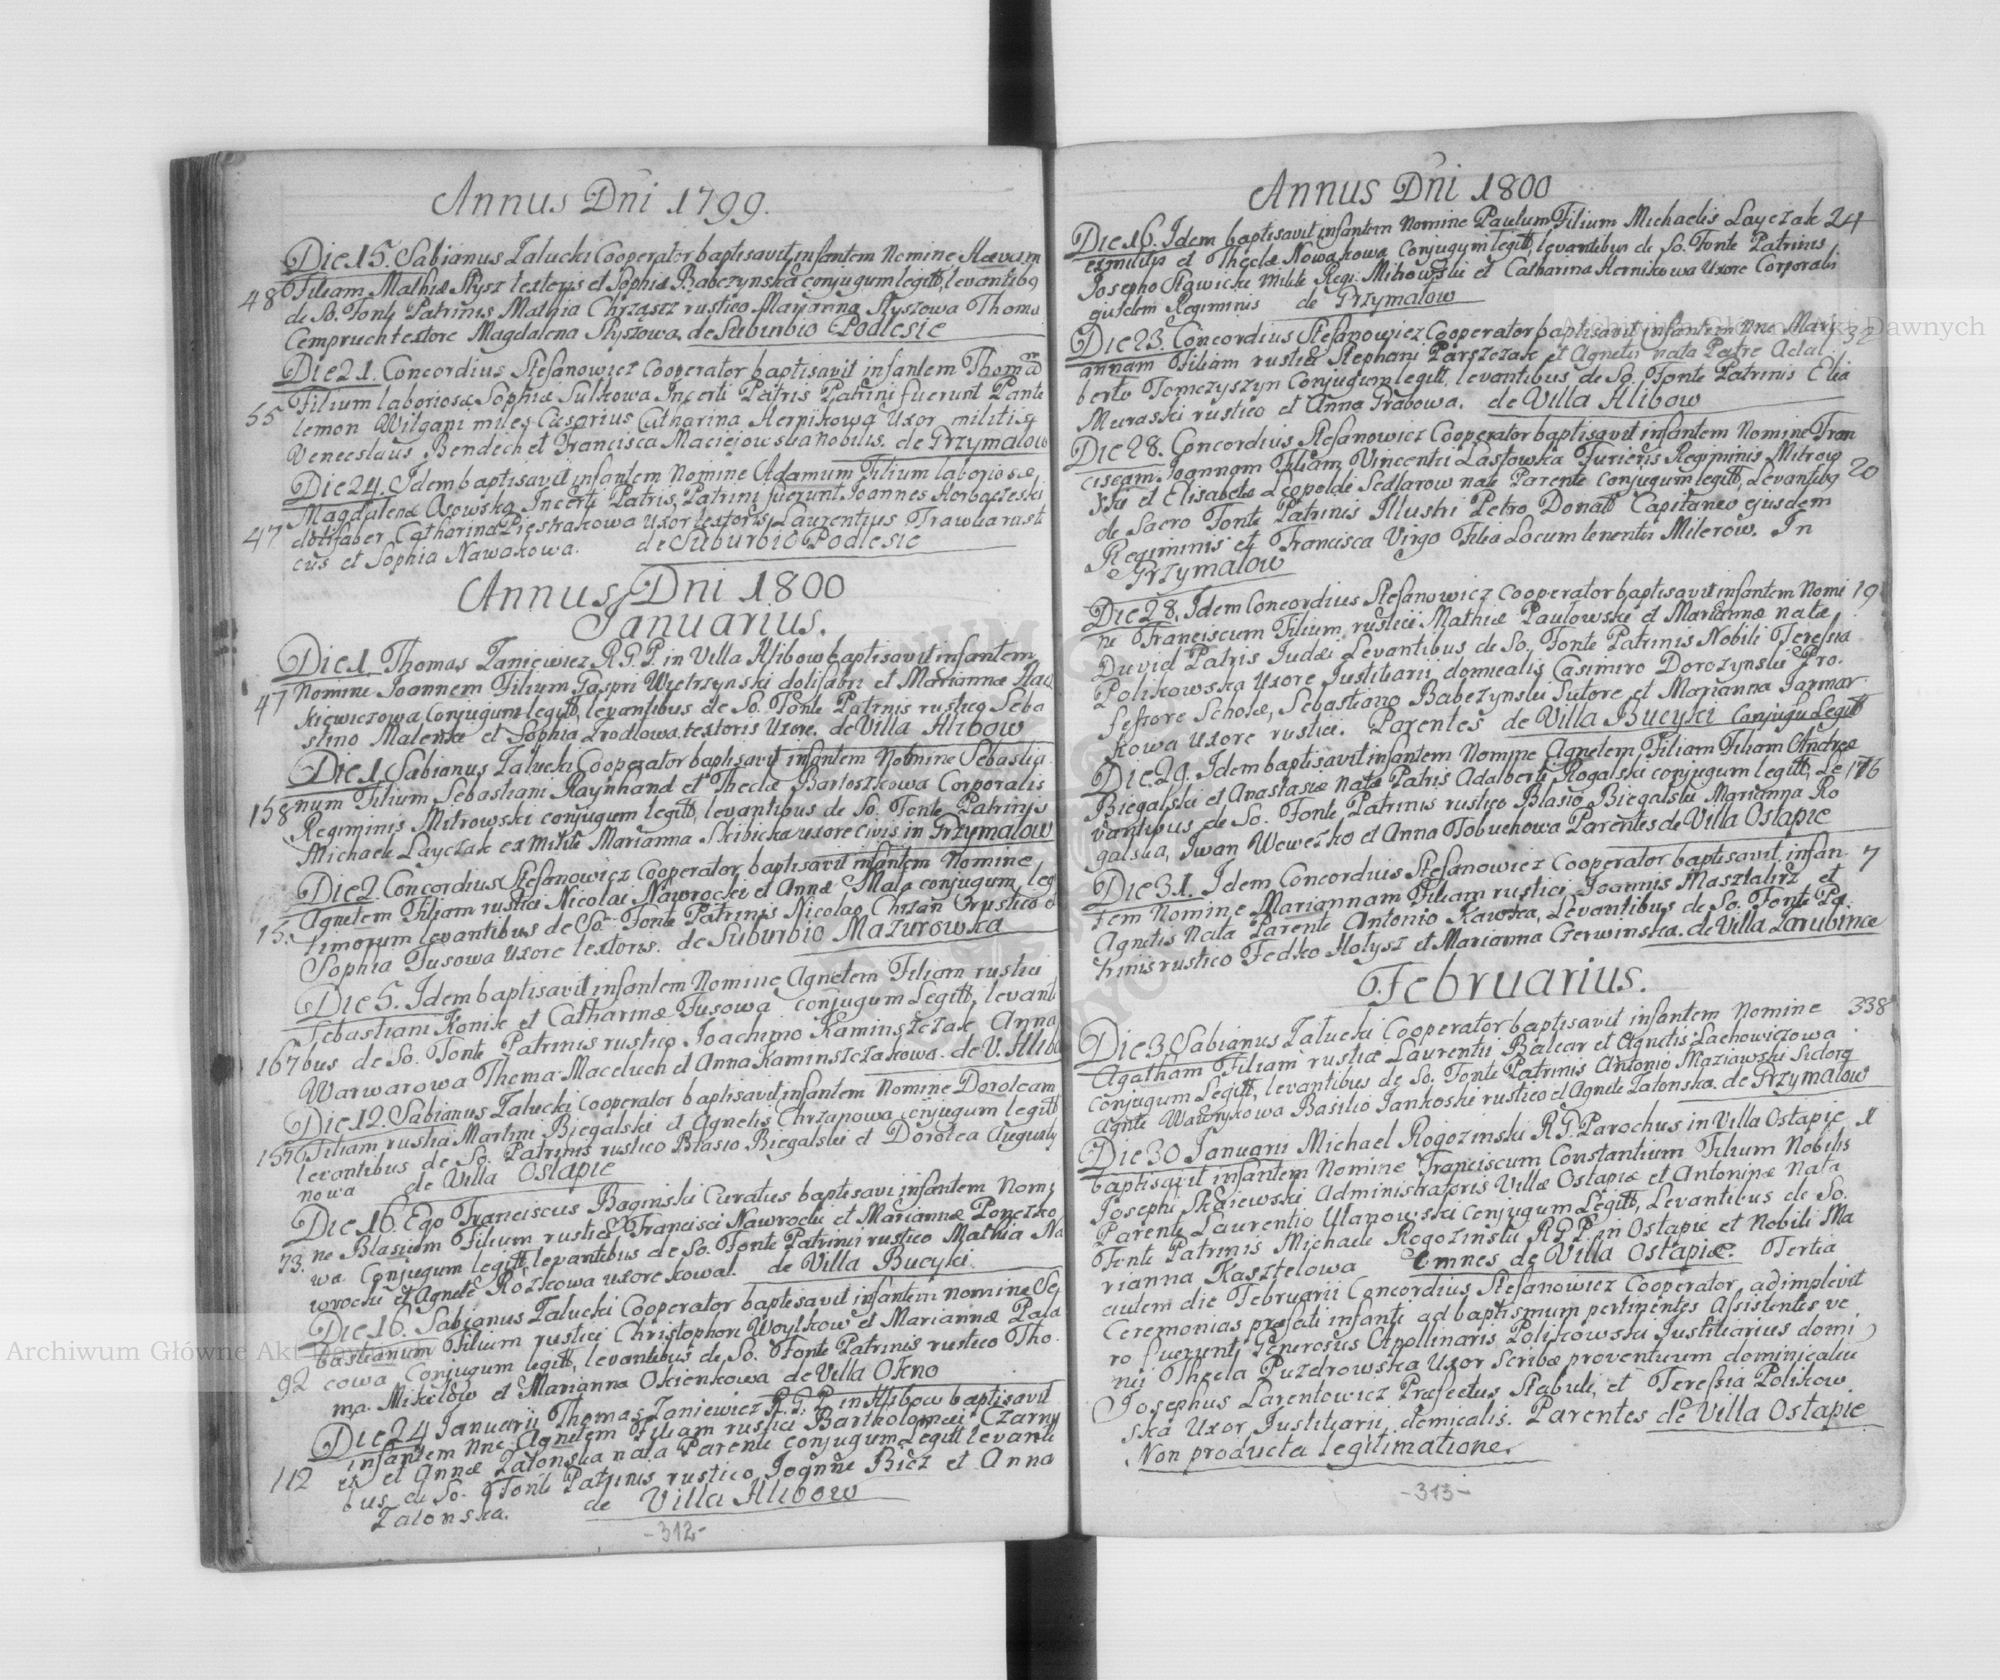 Annus Dni 1799.
Die 15. Sabianus Zalucki Cooperator baptisavit infantem Nomine Aevam
Filiam Mathiæ Rysz textoris et Sophiæ Babczynska conjugum legitt, levantibq
48
de So. Fonte Patrinis Mathia Chrząszcz rustico Marjanna Ryszowa Thoma
Cempruch textore Magdalena Ryszowa. de Suburbio Podlesie
Die 21. Concordius Stefanowicz Cooperator baptisavit infantem Thomam
Filium laboriosæ Sophiæ Sulkowa Incerti Patris Patrini fuerunt Pante
55
lemon Wilgani miles Cæsarius Catharina Hernikowa Uxor militis
Venceslaus Bendech et Francisca Maciejowska nobilis. de Grzymalow
Die 24. Idem baptisavit infantem Nomine Adamum Filium laboriosæ,
Magdalenæ Osowska Incerti Patris, Patrini fuerunt Joannes Horbaczeski
47
dolifaber Catharina Pięstrakowa uxor textoris, Laurentius Trawka rusti
cus et Sophia Nawakowa. de Suburbio Podlesie
Annus Dni 1800
Januarius.
Die 1. Thomas Zaniewicz R.G.P. in Villa Hlibow baptisavit infantem
47 Nomine Joannem Filium Caspri Wietrzynski dolifabri et Mariannæ
kiewiczowa Conjugum legitt, levantibus de So. Fonte Patrinis rustico Seba
stino Malenki et Sophia Zrodlowa textoris Uxore. de Villa Hlibow
Die 1. Sabianus Zalucki Cooperator baptisavit infantem Nomine Sebastia
158 num Filium Sebastiani Raynhand et Theclæ Bartoszkowa Corporalis
Regiminis Mitrowski conjugum legitt, levantibus de So. Fonte Patrinis
Michaele Layczak ex milite Marianna Skibicka uxore Civis in Grzymalow
Die 2. Concordius Stefanowicz Cooperator baptisavit infantem Nomine
Agnetem Filiam rustici Nicolai Nawrocki et Annæ Mala conjugum leg
15.
timorum levantibus de So. Fonte Patrinis Nicolao Chrzan rustico e
Sophia Tusowa Uxore textoris. de Suburbio Mazurowka
Die 5. Idem baptisavit infantem Nomine Agnetem Filiam rustici
Sebastiani Konik et Catharinæ Tusowa conjugum Legitt, levanti
167 bus de So. Fonte Patrinis rustico Joachimo Kaminszczak Anna
Warwarowa Thoma Maceluch et Anna Kaminszczakowa. de V. Hlibo
Die 12. Sabianus Zalucki Cooperator baptisavit infantem Nomine Doroteam
Filiam rustici Martini Biegalski et Agnetis Chrzanowa conjugum legitt
levantibus de So. Patrinis rustico Blasio Biegalski et Dorotea Augusty
nowa de Villa Ostapie
Die 16. Ego Franciscus Baginski Curatus baptisavi infantem Nomi
73. ne Blasium Filium rustici Francisci Nawrocki et Mariannæ Ponczko
wa. Conjugum legitt, levantibus de So. Fonte Patrinis rustico Mathia Na
wrocki et Agnete Rozkowa uxore kowal. de Villa Bucyki.
Die 16. Sabianus Zalucki Cooperator baptisavit infantem nomine Se
bastianum Filium rustici Christophori Woytkow et Mariannæ Pala
92 cowa Conjugum legitt, levantibus de So. Fonte Patrinis rustico Tho
ma. Mikitow et Marianna Okienkowa de Villa Okno
Die 24 Januarii Thomas Zaniewicz R.G.P. in Hlibow baptisavit
infantem Nne Agnetem Filiam rustici Bartholomæi Czarny
112
et Annæ Zatonska nata Parente conjugum Legitt levanti
bus de So. Fonte Patrinis rustico Joanne Bicz et Anna
Zatonska. de Villa Hlibow
-312-
Annus Dni 1800
Die 16. Idem baptisavit infantem Nomine Paulum Filium Michaelis Layczak 24
exmilitis et Theclæ Nowakowa Conjugum legitt, levantibus de So. Fonte Patrinis
Josepho Slawicki Milite Regi. Mitrowski et Catharina Hernikowa Uxore Corporali
ejusdem Regiminis de Grzymalow
Die 23. Concordius Stefanowicz Cooperator baptisavit infantem Nne Mari 32
annam Filiam rustici Stephani Parszczak et Agnetis nata Patre Adal
berto Tomczyszyn Conjugum legitt, levantibus de So. Fonte Patrinis Elia
Muraski rustico et Anna Grabowa. de Villa Hlibow
Die 28. Concordius Stefanowicz Cooperator baptisavit infantem Nomine Fran
ciscam Joannam Filiam Vincentii Lastowska Furieris Regiminis Mitrow 20
ski et Elisabetæ Leopoldi Sedlarow nata Parente Conjugum legitt, Levantibq
de Sacro Fonte Patrinis Illustri Petro Donatt Capitaneo ejusdem
Regiminis et Francisca Virgo Filia Locum tenentis Milerow. In
Grzymalow
Die 28. Idem Concordius Stefanowicz Cooperator baptisavit infantem Nomi 19
ne Franciscum Filium rustici Mathiæ Pawlowski et Mariannæ nata
David Patris Judæi Levantibus de So. Fonte Patrinis Nobili Teressia
Polikowska Uxore Justitiarii dominealis Casimiro Dorozynski Pro.
fessore Scholæ, Sebastiano Babczynski Sutore et Marianna Jarmar
kowa Uxore rustici. Parentes de Villa Bucyki Conjugu Legitt
Die 29. Idem baptisavit infantem Nomine Agnetem Filiam Filiam Andreæ
Biegalski et Anastasiæ Nata Patris Adalberti Rogalski conjugum legitt, Le 176
vantibus de So. Fonte, Patrinis rustico Blasio Biegalski Marianna Ro
galska, Iwan Wowczko et Anna Tobuchowa Parentes de Villa Ostapie
Die 31. Idem Concordius Stefanowicz Cooperator baptisavit infan 7
tem Nomine Mariannam Filiam rustici Joannis Masztalirz et
Agnetis Nata Parente Antonio Kawka, Levantibus de So. Fonte Pa
trinis rustico Fedko Holysz et Marianna Czerwinska. de Villa Zarubince
Februarius.
Die 3. Sabianus Zalucki Cooperator baptisavit infantem Nomine 338
Agatham Filiam rustici Laurentii Balcar et Agnetis Lachowiczowa
Conjugum Legitt, levantibus de So. Fonte Patrinis Antonio Maziawski Sidorq
Agnete Wawrykowa Basilio Jankoski rustico et Agnete Zatonska. de Grzymalow
Die 30 Januarii Michael Rogozinski R.G. Parochus in Villa Ostapie 1
baptisavit infantem Nomine Franciscum Constantium Filium Nobilis
Josephi Skaiewski Administratoris Villæ Ostapie et Antoninæ Nata
Parente Laurentio Ulanowski Conjugum Legitt, Levantibus de So.
Fonte Patrinis Michaele Rogozinski R.G.P. in Ostapie et Nobili Ma
rianna Kasztelowa Omnes de Villa Ostapiæ. Tertia
autem die Februarii Concordius Stefanowicz Cooperator, adimplevit
Ceremonias præfati infanti ad baptismum pertinentes Assistentes ve
ro fuerunt, Generosus Apollinaris Polikowski Justitiarius domi
nii Thecla Puzdrowska Uxor Scribæ proventuum dominicaliu
Josephus Larentowicz Præfectus Stabuli, et Teressia Polikow
ska Uxor Justitiarii domicalis. Parentes de Villa Ostapie
Non producta legitimatione.
-313-
Archiwum Główne Akt Dawnych
Archiwum Główne Akt Dawnych